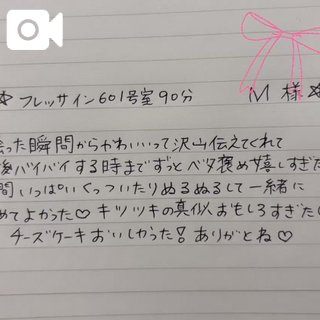 ☆ フレッサイン601号室90分 M 様 ☆
会った瞬間からかわいいって沢山伝えてくれて
後バイバイする時までずっとベタ褒め嬉しすぎた
間いっぱいくっついたりぬるぬるして一緒に
めてよかった♡ キツツキの真似おもしろすぎた
チーズケーキおいしかった!ありがとね♡